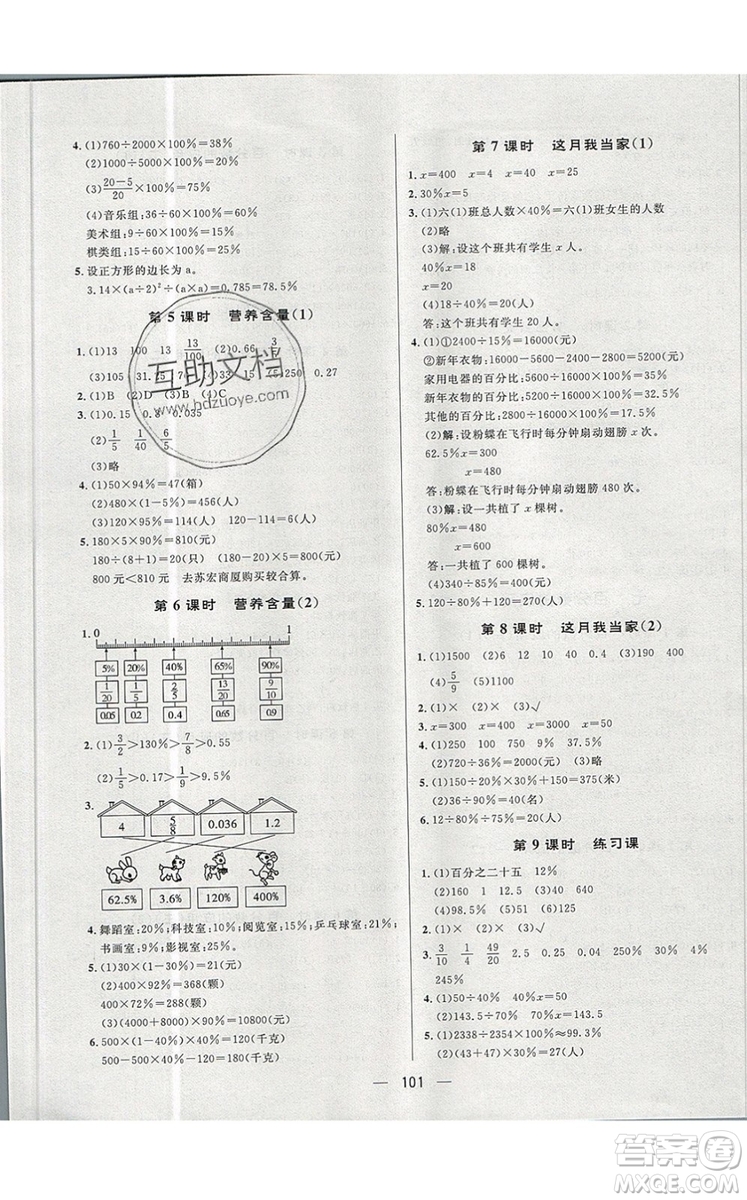 4. (1)760÷2000×100%=38%
(2)1000÷5000×100%=20%
(3)20-5/20×100%=75%
(4)音乐组:36÷60×100%=60%
美术组:9÷60×100%=15%
棋类组:15÷60×100%=25%
5. 设正方形的边长为a。
3.14×(a÷2)²÷(a×a)=0.785=78.5%
第5课时 营养含量(1)
1. (1)13 100 13 13/100 (2)0.66
(3)105 31.25 (4)33 250 0.27
2. (1)B (2)D (3)B (4)C
3. (1)0.15 0.8 0.035
(2)1/5 1/40 6/5
(3)略
4. (1)50×94%=47(箱)
(2)480×(1-5%)=456(人)
(3)120×95%=114(人) 120-114=6(人)
5. 180×5×90%=810(元)
180÷(8+1)=20(只) (180-20)×5=800(元)
800元<810元 去苏宏商厦购买较合算。
第6课时 营养含量(2)
1. 0 1
5% 20% 40% 65% 90%
1/20 1/5 2/5 13/20 9/10
0.05 0.2 0.4 0.65 0.9
2. (1)3/2>130%>7/8
(2)1/5>0.17>1/9>9.5%
3.
4 5/8 0.036 1.2
62.5% 3.6% 120% 400%
4. 舞蹈室:20%;科技室:10%;阅览室:15%;乒乓球室:21%;
书画室:9%;影视室:25%。
5. (1)30×(1-30%)=21(元)
(2)400×(1-28%)=288(颗)
400×72%=288(颗)
(3)(4000+8000)×90%=10800(元)
6. 500×(1-40%)-120=180(千克)
500-500×40%-120=180(千克)
第7课时 这月我当家(1)
1. x=400 x=4 x=40 x=25
2. 30%x=5
3. (1)六(1)班总人数×40%=六(1)班女生的人数
(2)略
(3)解:设这个班共有学生x人。
40%x=18
x=20
答:这个班共有学生20人。
4. (1)①2400÷15%=16000(元)
②新年衣物:16000-5600-2800-2400=5200(元)
家用电器的百分比:5600÷16000×100%=35%
新年衣物的百分比:5200÷16000×100%=32.5%
其他的百分比:2800÷16000×100%=17.5%
(2)解:设粉蝶在飞行时每分钟扇动翅膀x次。
62.5%x=300
x=480
答:粉蝶在飞行时每分钟扇动翅膀480次。
(3)解:设一共植了x棵树。
80%x=480
x=600
答:一共植了600棵树。
5. 120÷80%-120=30(人)
第8课时 这月我当家(2)
1. (1)1500 (2)6 12 10 40 0.4 (3)180
(4)5/9
2. (1)× (2)× (3)√
3. x=300 x=400 x=75 x=2000
4. (1)250 100 750 37.5%
(2)720÷36%=2000(元) (3)略
5. (1)150÷20%×50%=375(米)
(2)10÷(44%-36%)×36%=45(名)
6. 12÷80%÷75%=20(人)
第9课时 练习课
1. (1)百分之二十五 12%
(2)160 1 12.5 (3)0.45 45%
(4)98.5% (5)1250
2. (1)× (2)× (3)√
3. 3/10 1/4 49/20 2.5 0.25 0.04 250% 50%
245%
4. (1)50÷40% 50×40%
(2)143.5÷70% 70%x=143.5
5. (1)2338÷2354×100%≈99.3%
(2)(43+47)×30%=27(人)
— 101 —
互助文档
www.hdzuoye.com
答案圈
MXQE.COM